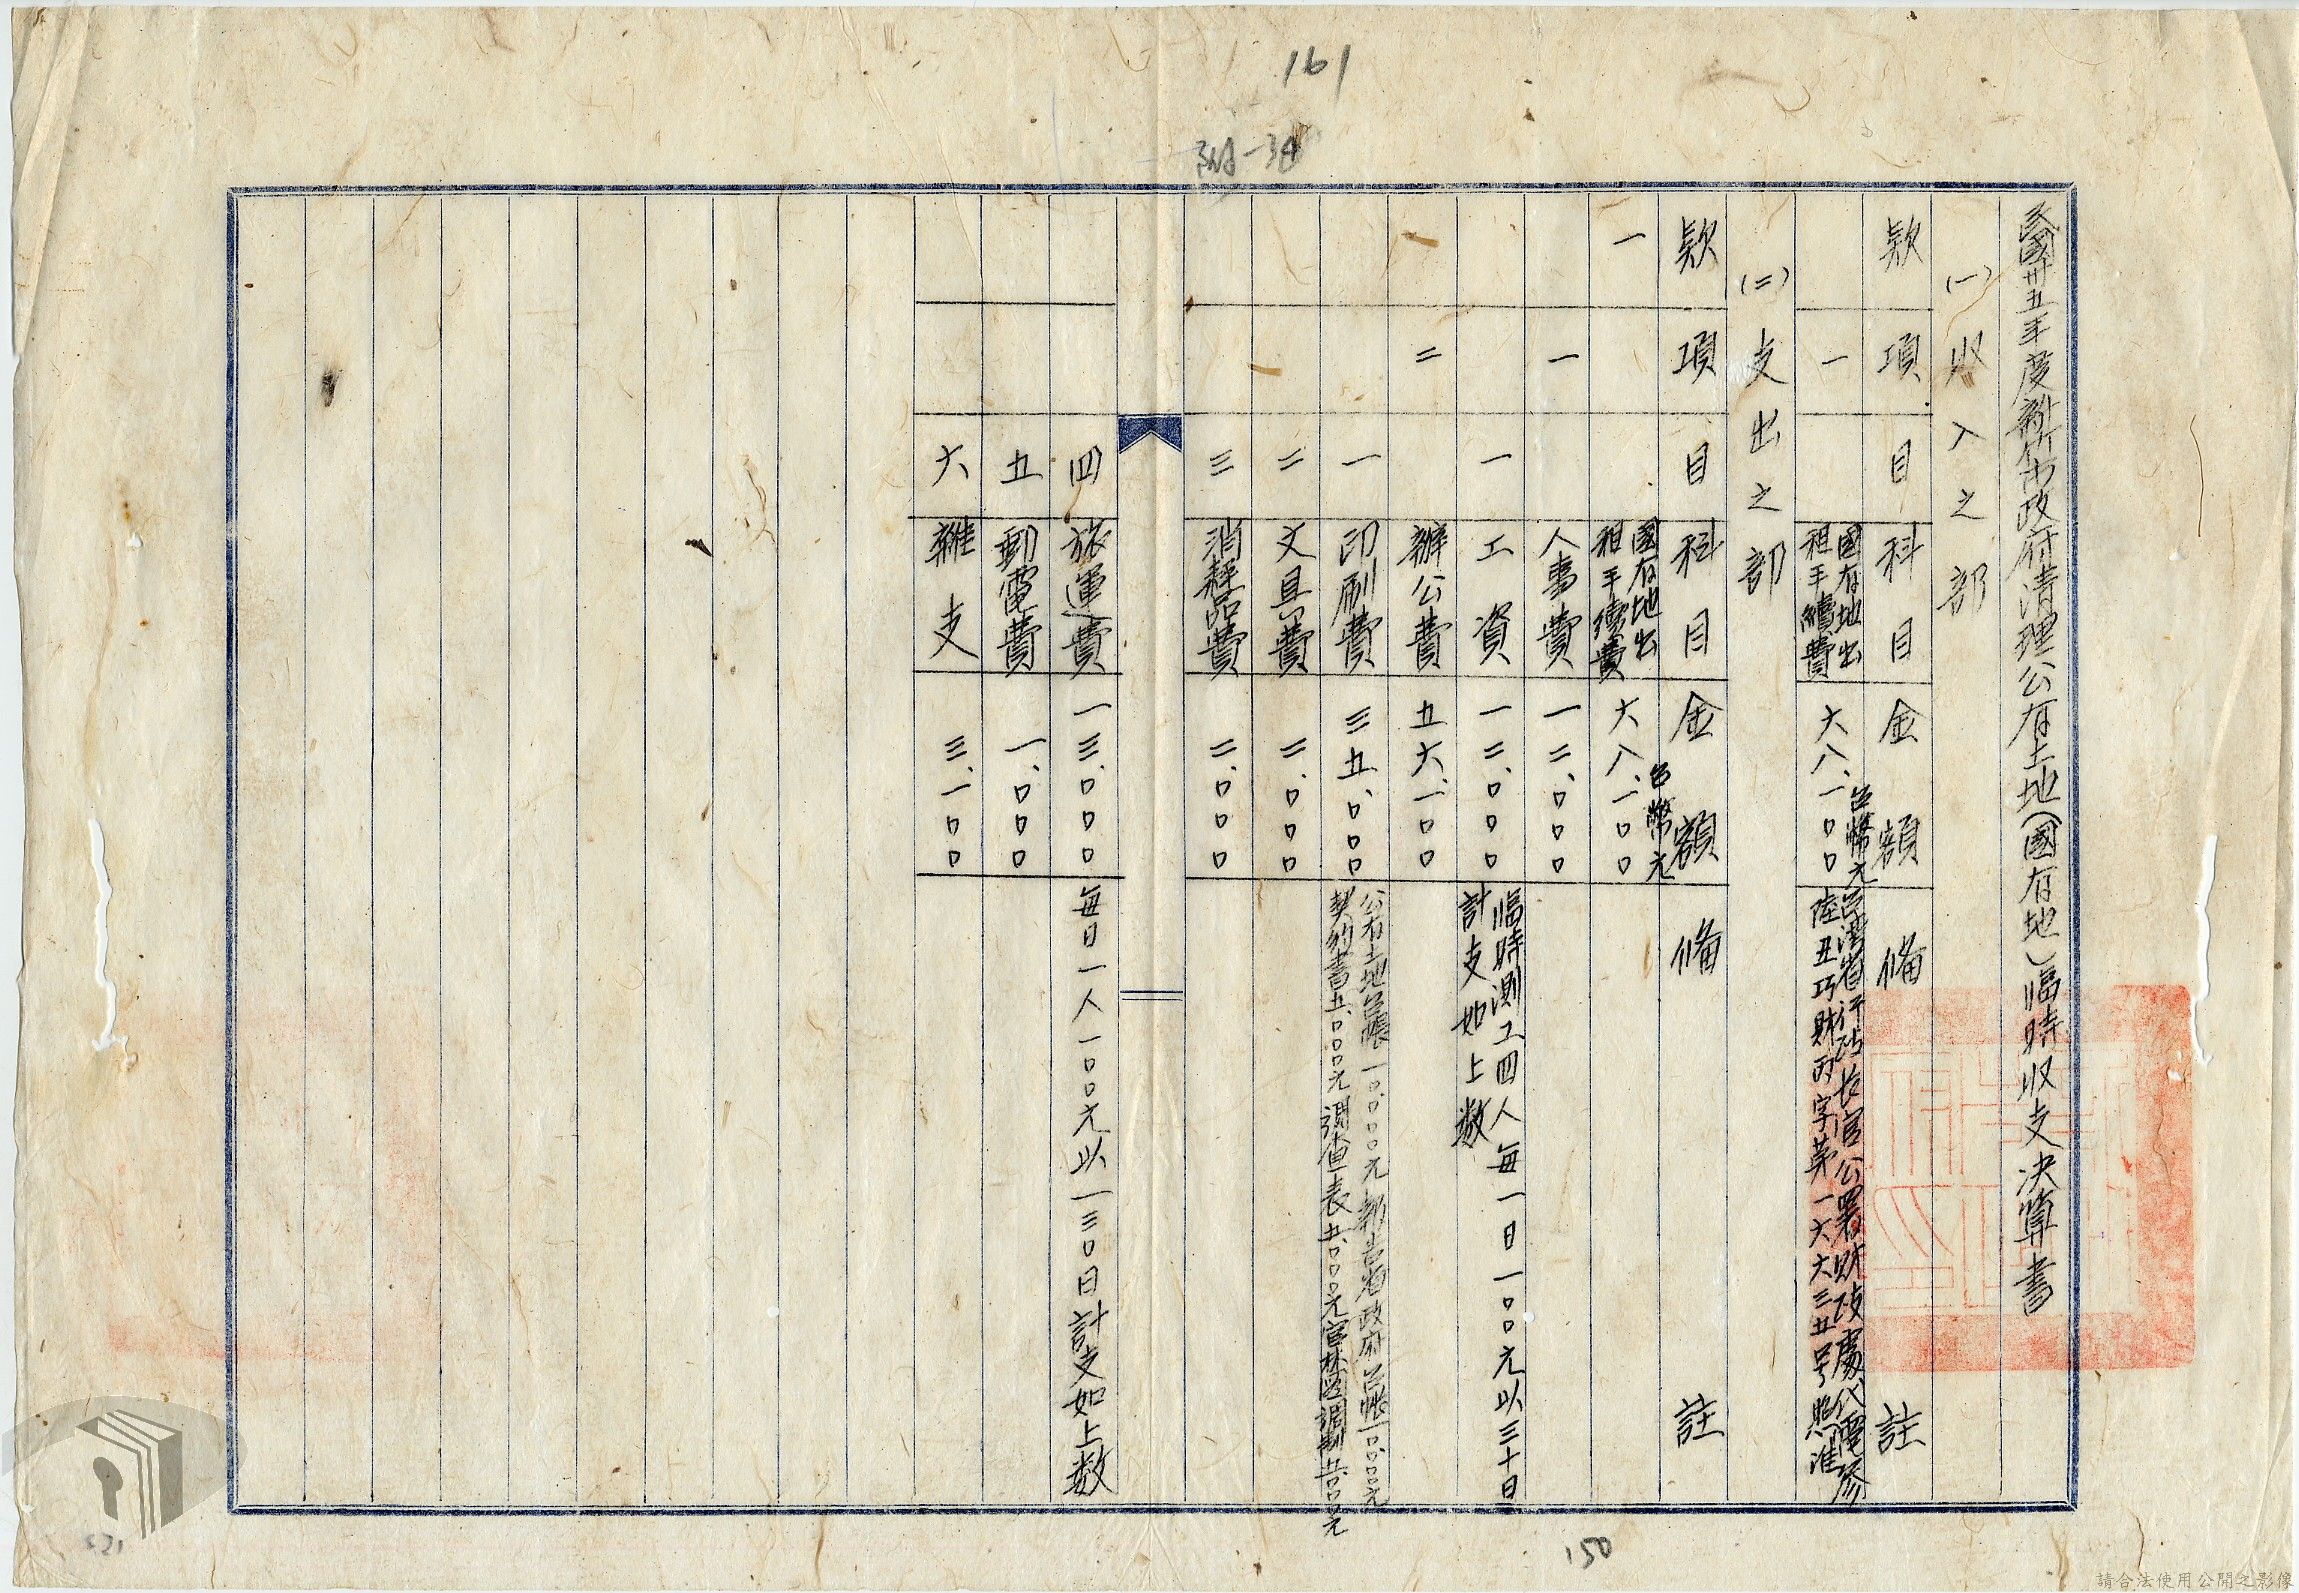 161
民國卅五年度新竹市政府清理公有土地(國有地)臨時收支決算書
(一)收入之部
款 項 目 科目 金額 備註
一 國有地出
租手續費 六八、一〇〇
台幣元
台灣省行政長官公署財政處代電參
陸丑巧財丙字第一六六三五号照准
(二)支出之部
款 項 目 科目 金額 備註
台幣元
一 國有地出
租手續費 六八、一〇〇
一 人事費 一二、〇〇〇
一 工資 一二、〇〇〇 臨時測工四人每一日一〇〇元以三十日
計支如上数
二 辦公費 五六、一〇〇
一 印刷費 三五、〇〇〇 公有土地台帳一〇、〇〇〇元 報告省政府台帳一〇、〇〇〇元
契約書五、〇〇〇元 調査表五、〇〇〇元 調制五、〇〇〇元
二 文具費 二、〇〇〇
三 消耗品費 二、〇〇〇
四 旅運費 一三、〇〇〇 每日一人一〇〇元以一三〇日計支如上数
五 郵電費 一、〇〇〇
六 雜支 三、一〇〇
150
請合法使用公開之影像